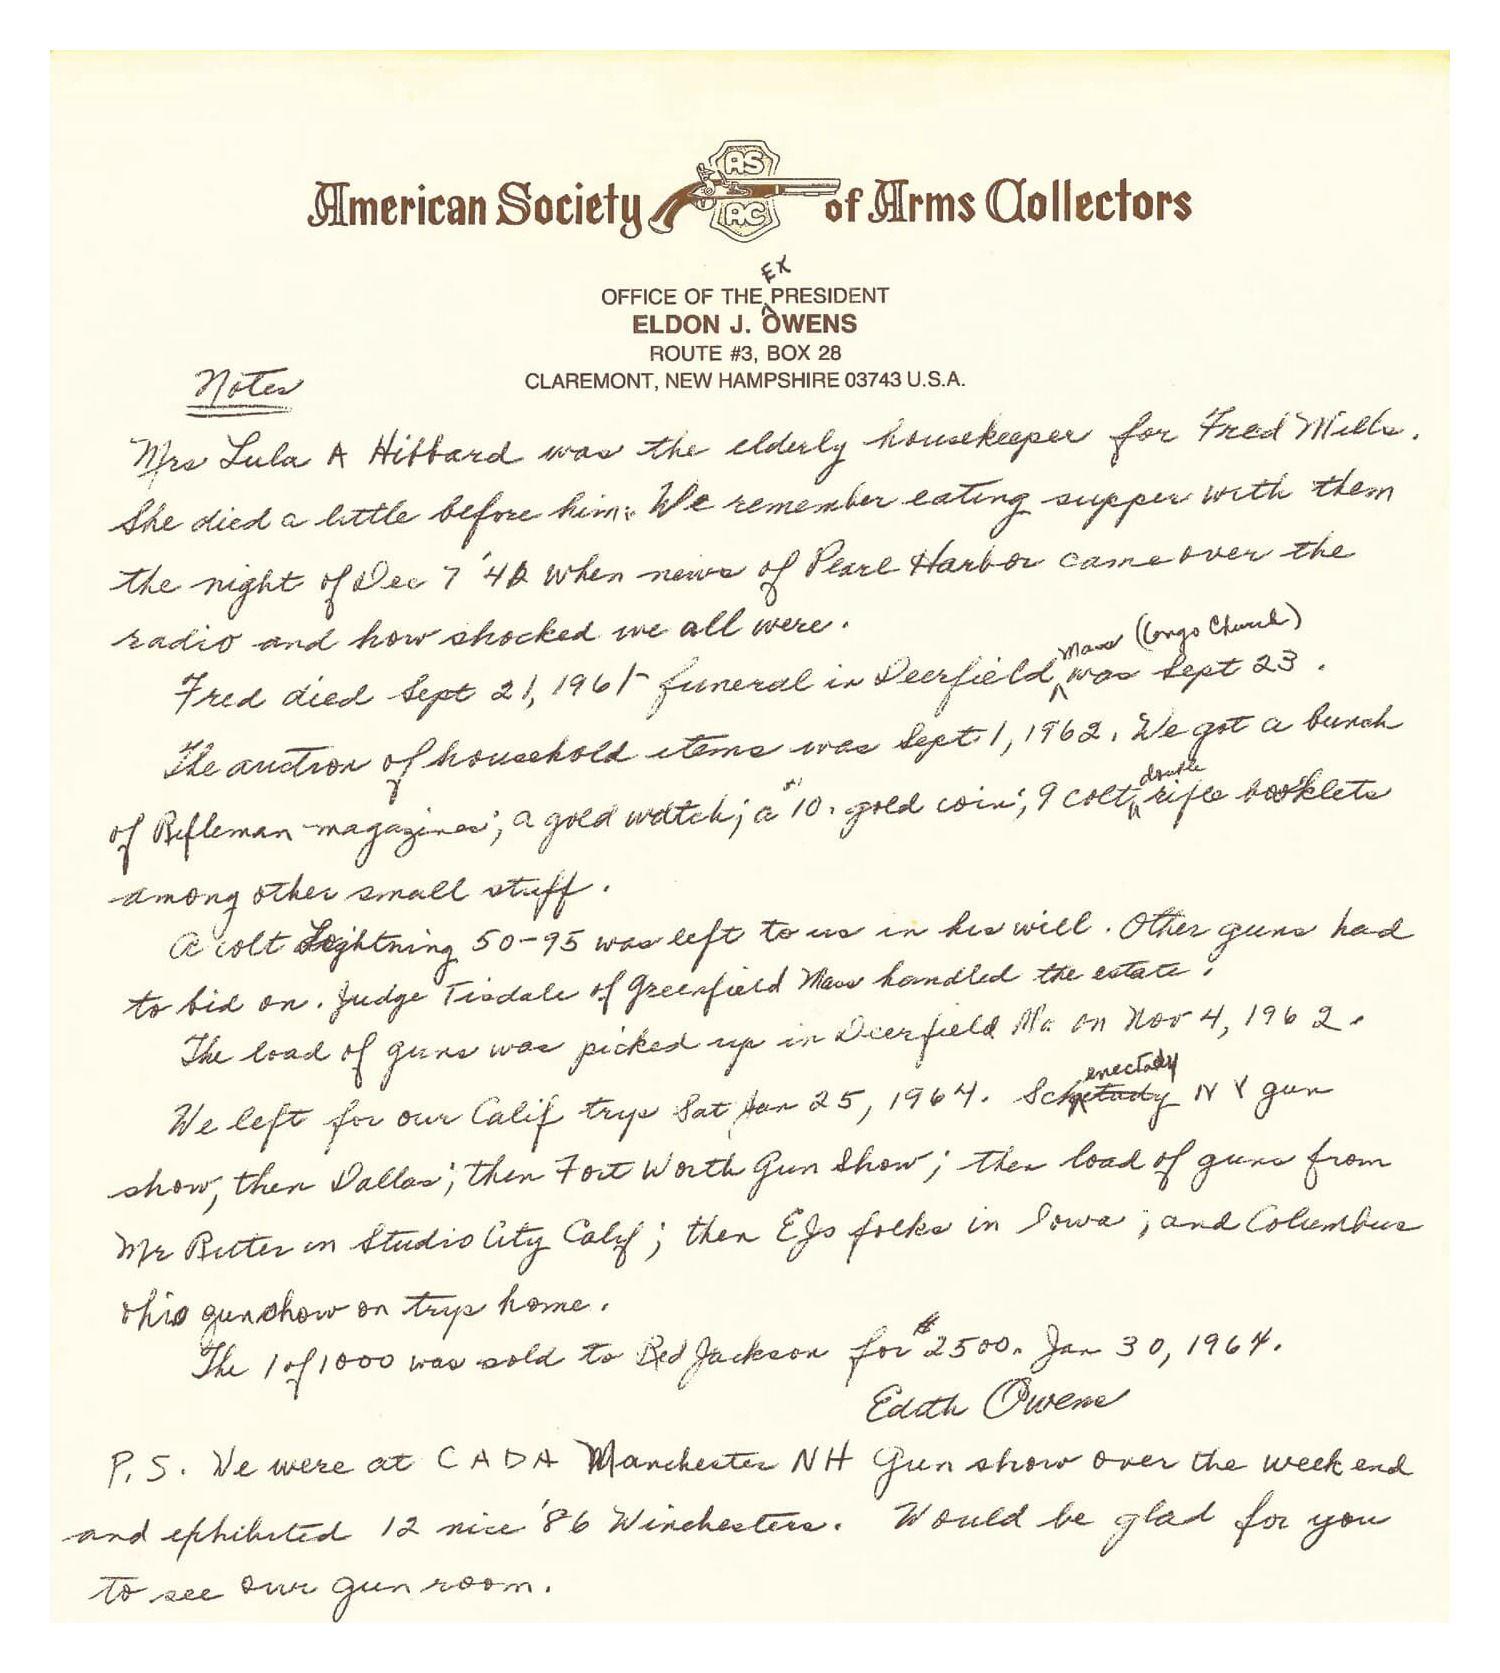 American Society of Arms Collectors
AS
AC
EX
OFFICE OF THE PRESIDENT
ELDON J. OWENS
ROUTE #3, BOX 28
CLAREMONT, NEW HAMPSHIRE 03743 U.S.A.
Notes
Mrs Lula A Hibbard was the elderly housekeeper for Fred Mills.
She died a little before him. We remember eating supper with them
the night of Dec 7 '41 when news of Pearl Harbor came over the
radio and how shocked we all were.
Mass (Congo Church)
Fred died Sept 21, 1961 - funeral in Deerfield was Sept 23.
The auction of household items was Sept. 1, 1962. We got a bunch
double
of Rifleman magazines; a gold watch; a $10. gold coin; 9 colt rifle booklets
among other small stuff.
A colt Lightning 50-95 was left to us in his will. Other guns had
to bid on. Judge Tisdale of Greenfield Mass handled the estate.
The load of guns was picked up in Deerfield Ma on Nov 4, 1962.
enectady
We left for our Calif trip Sat Jan 25, 1964. Schetady N Y gun
show, then Dallas; then Fort Worth Gun Show; then load of guns from
Mr in Studio City Calif; then EJs folks in Iowa; and Columbus
Ohio gunshow on trip home.
The 1 of 1000 was sold to Red Jackson for $2500. Jan 30, 1964.
Edith Owens
P.S. We were at CADA Manchester NH Gun show over the week end
and exhibited 12 nice '86 Winchesters. Would be glad for you
to see our gun room.